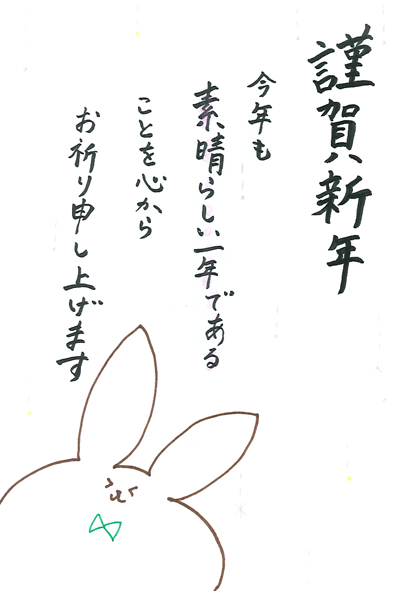 謹賀新年
今年も
素晴らしい一年である
ことを心から
お祈り申し上げます